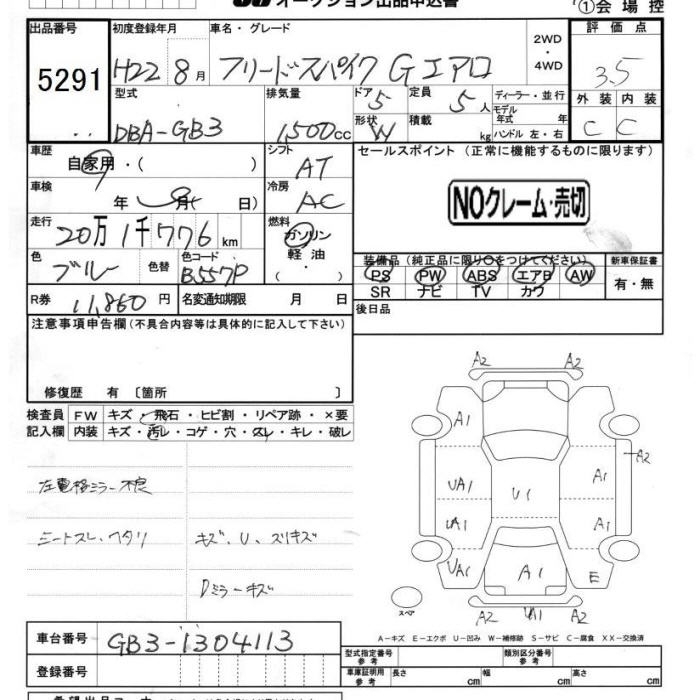 オークション出品申込書 ①会場控
出品番号 初度登録年月 車名・グレード 2WD 評価点
5291 H22 8月 フリードスパイク Gエアロ ・4WD 3.5
型式 排気量 ドア 定員 ディーラー・並行 外装 内装
DBA-GB3 1500cc 5 5人 モデル年式 年 C C
形状 積載
W kg ハンドル 左・右
車歴 シフト セールスポイント (正常に機能するものに限ります)
自家用・( ) AT
車検 冷房 NOクレーム・売切
年 月( 日) AC
走行 燃料
20万1千776km ガソリン
軽油
・( )
色 色替 色コード 装備品(純正品に限り○をつけてください) 新車保証書
ブルー B557P PS PW ABS エアB AW 有・無
SR ナビ TV カワ
R券 11,860円 名変通知期限 月 日 後日品
注意事項申告欄(不具合内容等は具体的に記入して下さい)
修復歴 有〔箇所 〕
検査員 FW キズ・飛石・ヒビ割・リペア跡・×要
記入欄 内装 キズ・汚レ・コゲ・穴・スレ・キレ・破レ
左電格ミラー不良
シートスレ、ヘタリ キズ、U、スリキズ
Dミラーキズ
A2 A2
A1
A2
UA1 U1 A1
UA1 A1
UA1 A1 E
スペア
A2 UA1 A2
A-キズ E-エクボ U-凹み W-補修跡 S-サビ C-腐食 XX-交換済
車台番号 GB3-1304113
登録番号
型式指定番号 参考 類別区分番号 参考
車庫証明用 参考 長さ cm 幅 cm 高さ cm